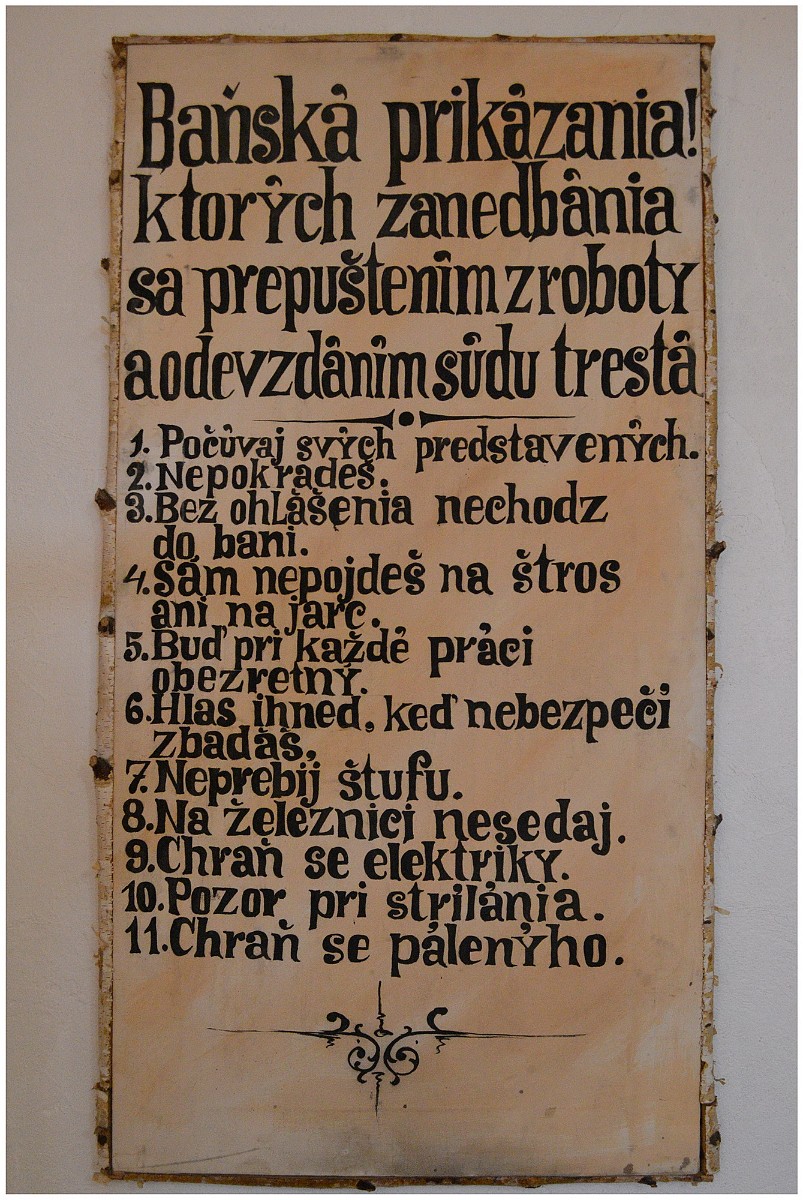 Baňská prikázania!
ktorých zanedbánia
sa prepuštením z roboty
a odevzdáním súdu trestá
1. Počúvaj svých predstavených.
2. Nepokradeš.
3. Bez ohlášenia nechodz
do bani.
4. Sám nepojdeš na štros
ani na jarc.
5. Buď pri každé práci
obezretný.
6. Hlas ihned, keď nebezpečí
zbadáš,
7. Neprebij štufu.
8. Na železnici nesedaj.
9. Chraň se elektriky.
10. Pozor pri strilánia.
11. Chraň se pálenýho.